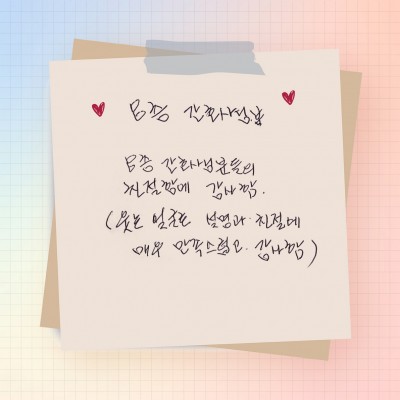 B층 간호사님분
B층 간호사님분들의
친절함에 감사함.
(웃는 얼굴로 설명과 친절에
매우 만족스럽고. 감사함)